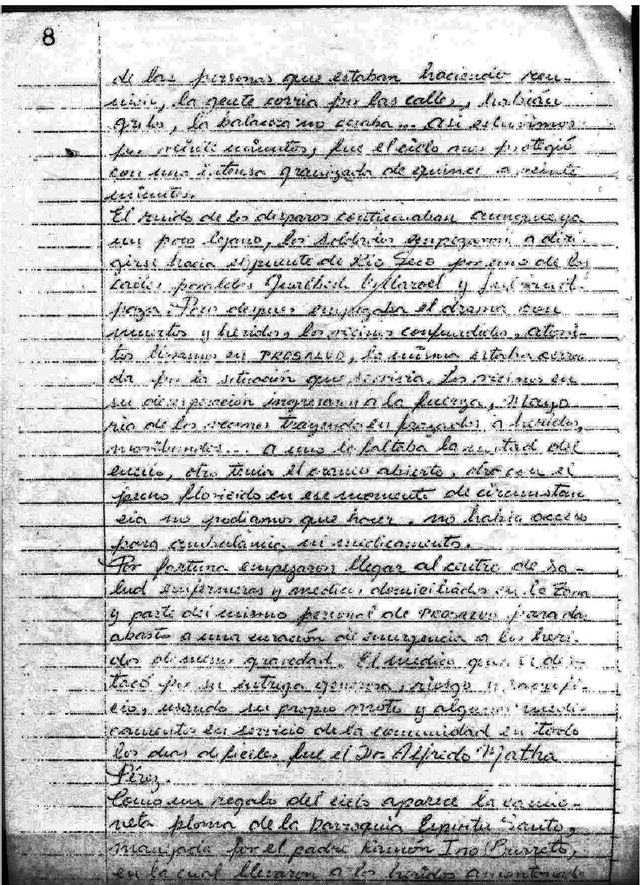 8
de las personas que estaban haciendo reu-
nión, la gente corria por las calles, habián
gritos, la balacera no cesaba... asi estuvimos
por veinte minutos, fue el cielo nos protegió
con una intensa granizada de quince a veinte
minutos.
El ruido de los disparos continuaban aunque ya
un poco lejano, los soldados empezaron a diri-
girse hacia el puente de Rio Seco por uno de las
calles paralelas
paza. Poco despues empezaba el drama con
muertos y heridos, los vecinos confundidos, atoni-
tos ibamos en PROSALUD, la misma estaba cerra-
da por la situación que se vivia. Los vecinos en
su desesperación ingresaron a la fuerza, Mayo
ria de los vecinos trayendo en frazadas a heridos,
moribundos... a uno le faltaba la mitad del
otro tenia el craneo abierto, otro con el
en ese momento de circunstan
cia no podiamos que hacer, no habia acceso
para ambulancia ni medicamento.
Por fortuna empezaron llegar al centro de Sa-
lud enfermeras y medicos domiciliados en la zona
y parte del mismo personal de PROSALUD para dar
abasto a una curación de emergencia a los heri-
dos de menos gravedad. El medico que se des-
tacó por su entrega generosa, riesgo y sacrifi-
cio, usando su propio moto y algunos medi-
camentos en servicio de la comunidad en todo
los dias dificiles fue el Dr. Alfredo Matha
Pérez.
Como un regalo del cielo aparece la camio-
neta ploma de la parroquia Espiritu Santo,
manejada por el padre
en la cual llevaron a los heridos amontonados